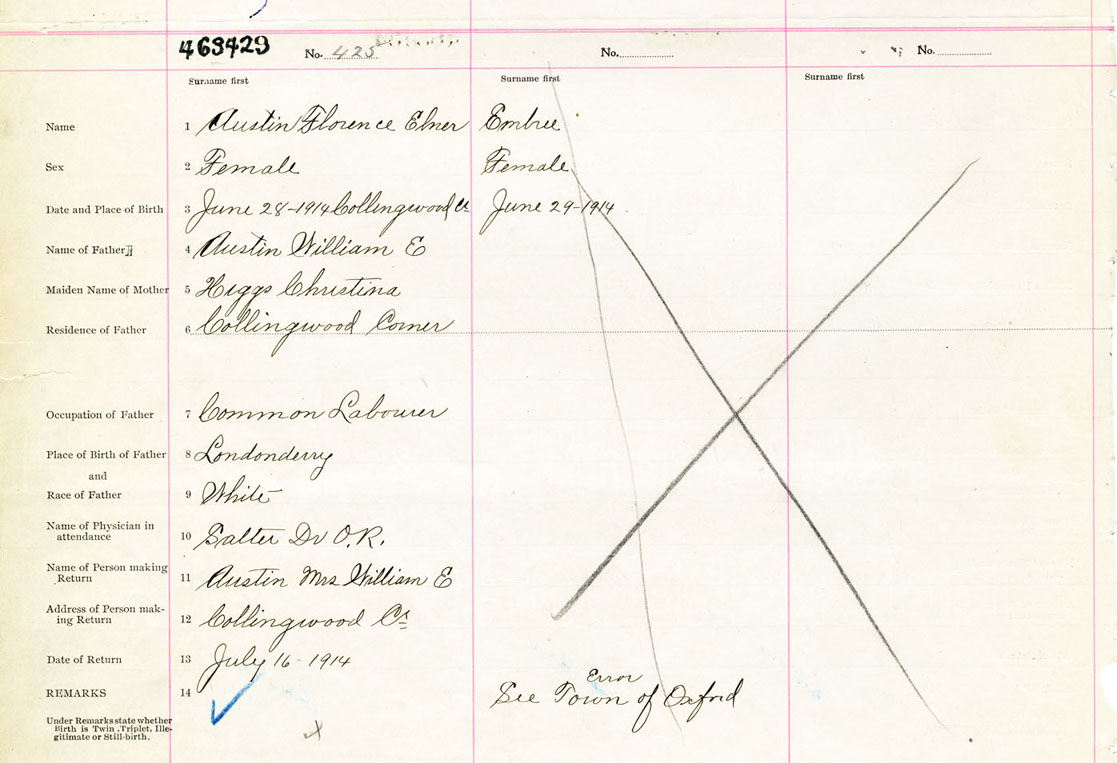 463429 No. 425 No. No.
Surname first Surname first Surname first
Name 1 Austin Florence Elner Embree
Sex 2 Female Female
Date and Place of Birth 3 June 28-1914 Collingwood Cr June 29-1914
Name of Father 4 Austin William E
Maiden Name of Mother 5 Higgs Christina
Residence of Father 6 Collingwood Corner
Occupation of Father 7 Common Labourer
Place of Birth of Father 8 Londonderry
and
Race of Father 9 White
Name of Physician in
attendance 10 Salter Dr O.R.
Name of Person making
Return 11 Austin Mrs William E
Address of Person mak-
ing Return 12 Collingwood Cr
Date of Return 13 July 16-1914
Error
REMARKS 14 See Town of Oxford
Under Remarks state whether
Birth is Twin, Triplet, Ille-
gitimate or Still-birth.